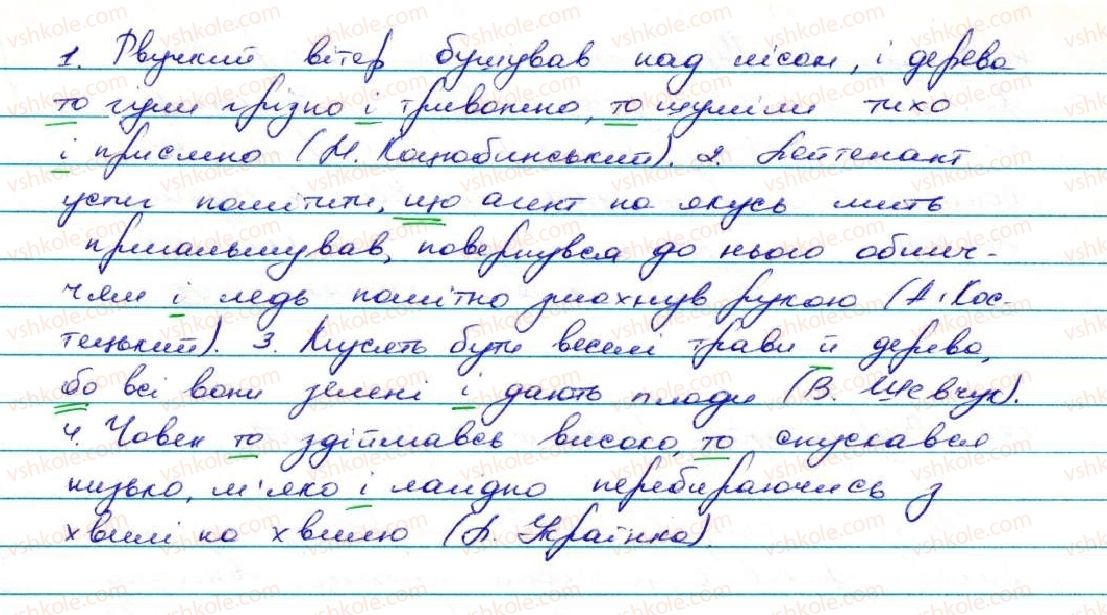 1. Рвучкий вітер бушував над лісом, і дерева
то гули грізно і тривожно, то шуміли тихо
і приємно (М. Коцюбинський). 2. Лейтенант
устиг помітити, що агент на якусь мить
пригальмував, повернувся до нього облич-
чям і ледь помітно змахнув рукою (А. Кос-
тецький). 3. Мусять бути веселі трави й дерева,
бо всі вони зелені і дають плоди (В. Шевчук).
4. Човен то здіймавсь високо, то спускався
низько, м'яко і лагідно перебираючись з
хвилі на хвилю (Л. Українка).
vshkole.com